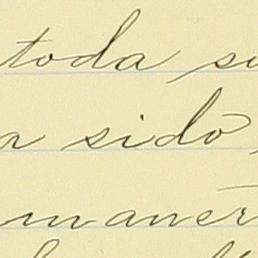 toda su
sido
maner